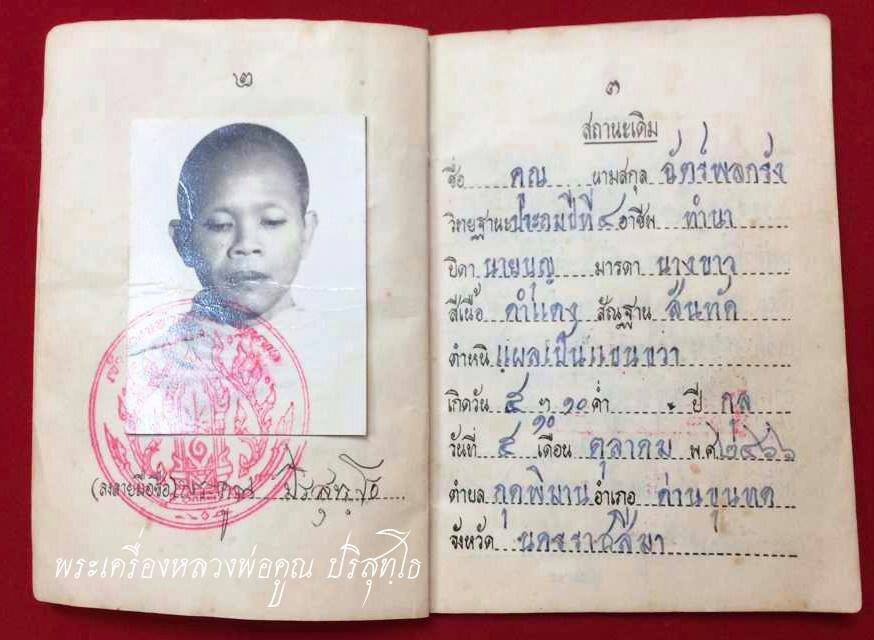 ๒
(ลงลายมือชื่อ) พระคูณ ปริสุทฺโธ
พระเครื่องหลวงพ่อคูณ ปริสุทฺโธ
๓
สถานะเดิม
ชื่อ คูณ นามสกุล ฉัตร์พลกรัง
วิทยฐานะ ประถมปีที่ ๔ อาชีพ ทำนา
บิดา นายบุญ มารดา นางขาว
สีเนื้อ ดำแดง สัณฐาน สันทัด
ตำหนิ แผลเป็นแขนขวา
เกิดวัน ๕ ฯ ๑๐ ค่ำ ปี กุล
๑๐
วันที่ ๔ เดือน ตุลาคม พ.ศ. ๒๔๖๖
ตำบล กุดพิมาน อำเภอ ด่านขุนทด
จังหวัด นครราชสีมา